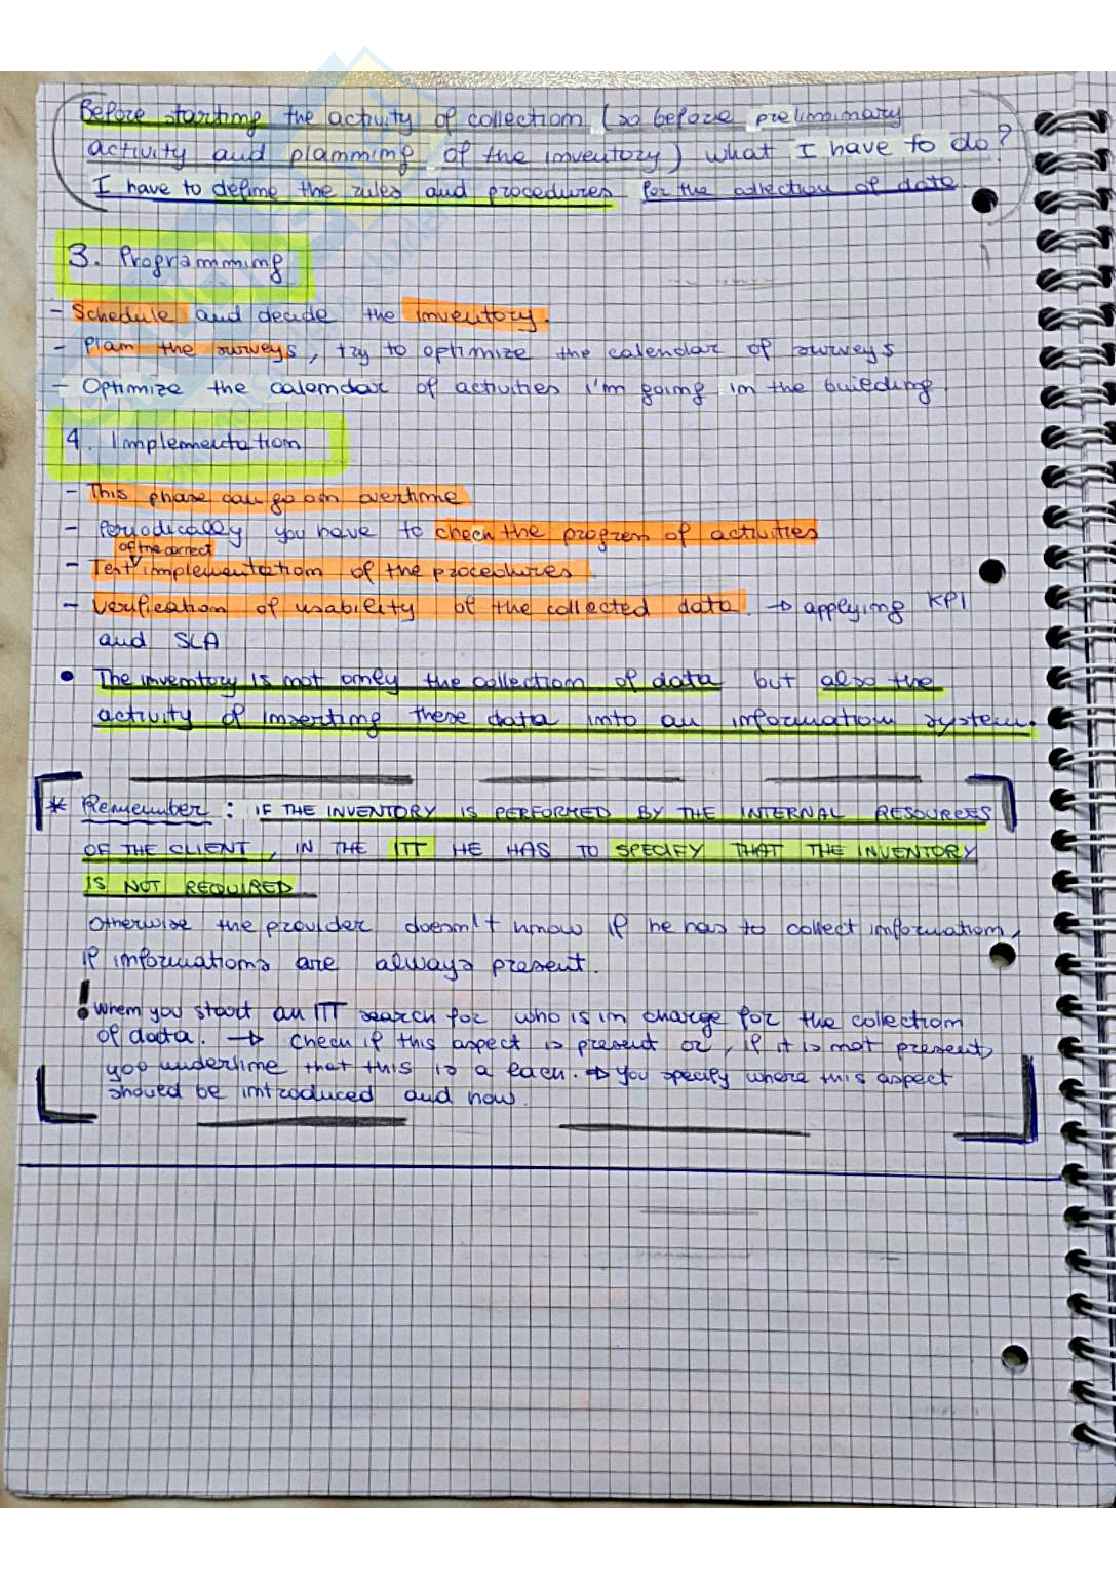 Before starting the activity of collection (so before preliminary
activity and planning of the inventory) what I have to do?
I have to define the rules and procedures for the collection of data
3. Programming
- Schedule and decide the inventory.
- Plan the surveys, try to optimize the calendar of surveys
- Optimize the calendar of activities I'm going in the building
4. Implementation
- This phase can go on overtime
- Periodically you have to check the progress of activities
of the correct
- Test implementation of the procedures
- Verification of usability of the collected data. → applying KPI
and SLA
• The inventory is not only the collection of data but also the
activity of inserting these data into an information system.
* Remember : IF THE INVENTORY IS PERFORMED BY THE INTERNAL RESOURCES
OF THE CLIENT, IN THE ITT HE HAS TO SPECIFY THAT THE INVENTORY
IS NOT REQUIRED
Otherwise the provider doesn't know if he has to collect information,
if informations are always present.
! When you start an ITT search for who is in charge for the collection
of data. → check if this aspect is present or, if it is not present,
you underline that this is a each. → you specify where this aspect
should be introduced and how.